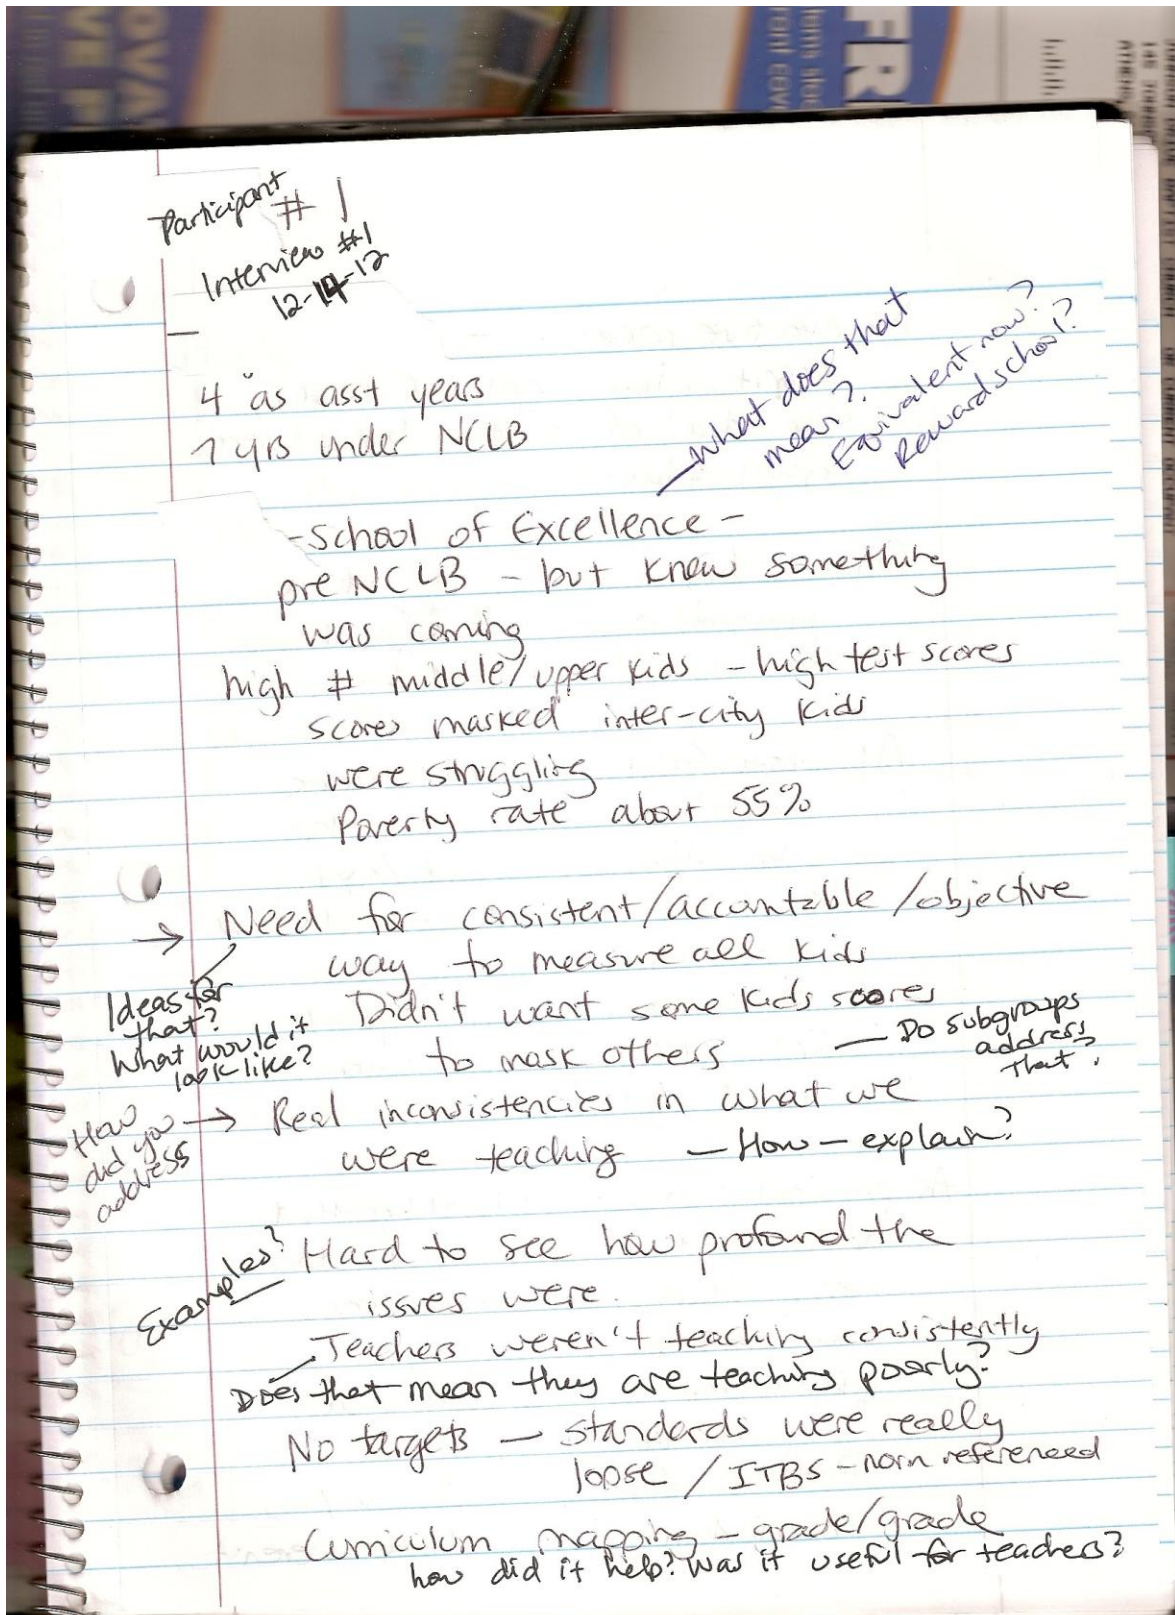 OVA
VE P
FR
Participant
# 1
Interview #1
12-14-12
4 as asst years
7 yrs under NCLB
what does that
mean?
Equivalent now?
Reward school?
-School of Excellence-
pre NCLB - but knew something
was coming
high # middle/upper kids - high test scores
scores masked inter-city kids
were struggling
Poverty rate about 55%
→ Need for consistent/accountable/objective
way to measure all kids
Ideas for
that?
What would it
look like?
Didn't want some kids scores
to mask others
— Do subgroups
address
that?
How
did you
address
→ Real inconsistencies in what we
were teaching — How — explain?
Examples?
Hard to see how profound the
issues were.
Teachers weren't teaching consistently
Does that mean they are teaching poorly?
No targets — standards were really
loose / ITBS - norm referenced
Curriculum mapping - grade/grade
how did it help? Was it useful for teachers?